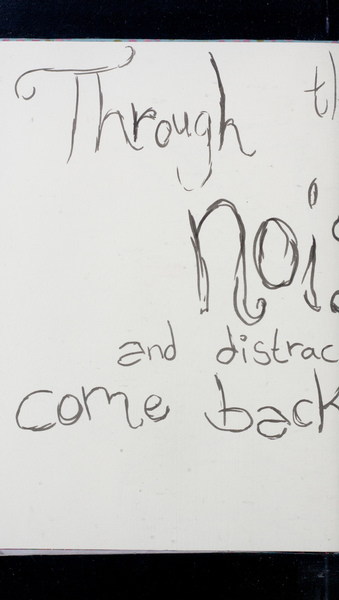 Through th
nois
and distrac
come back